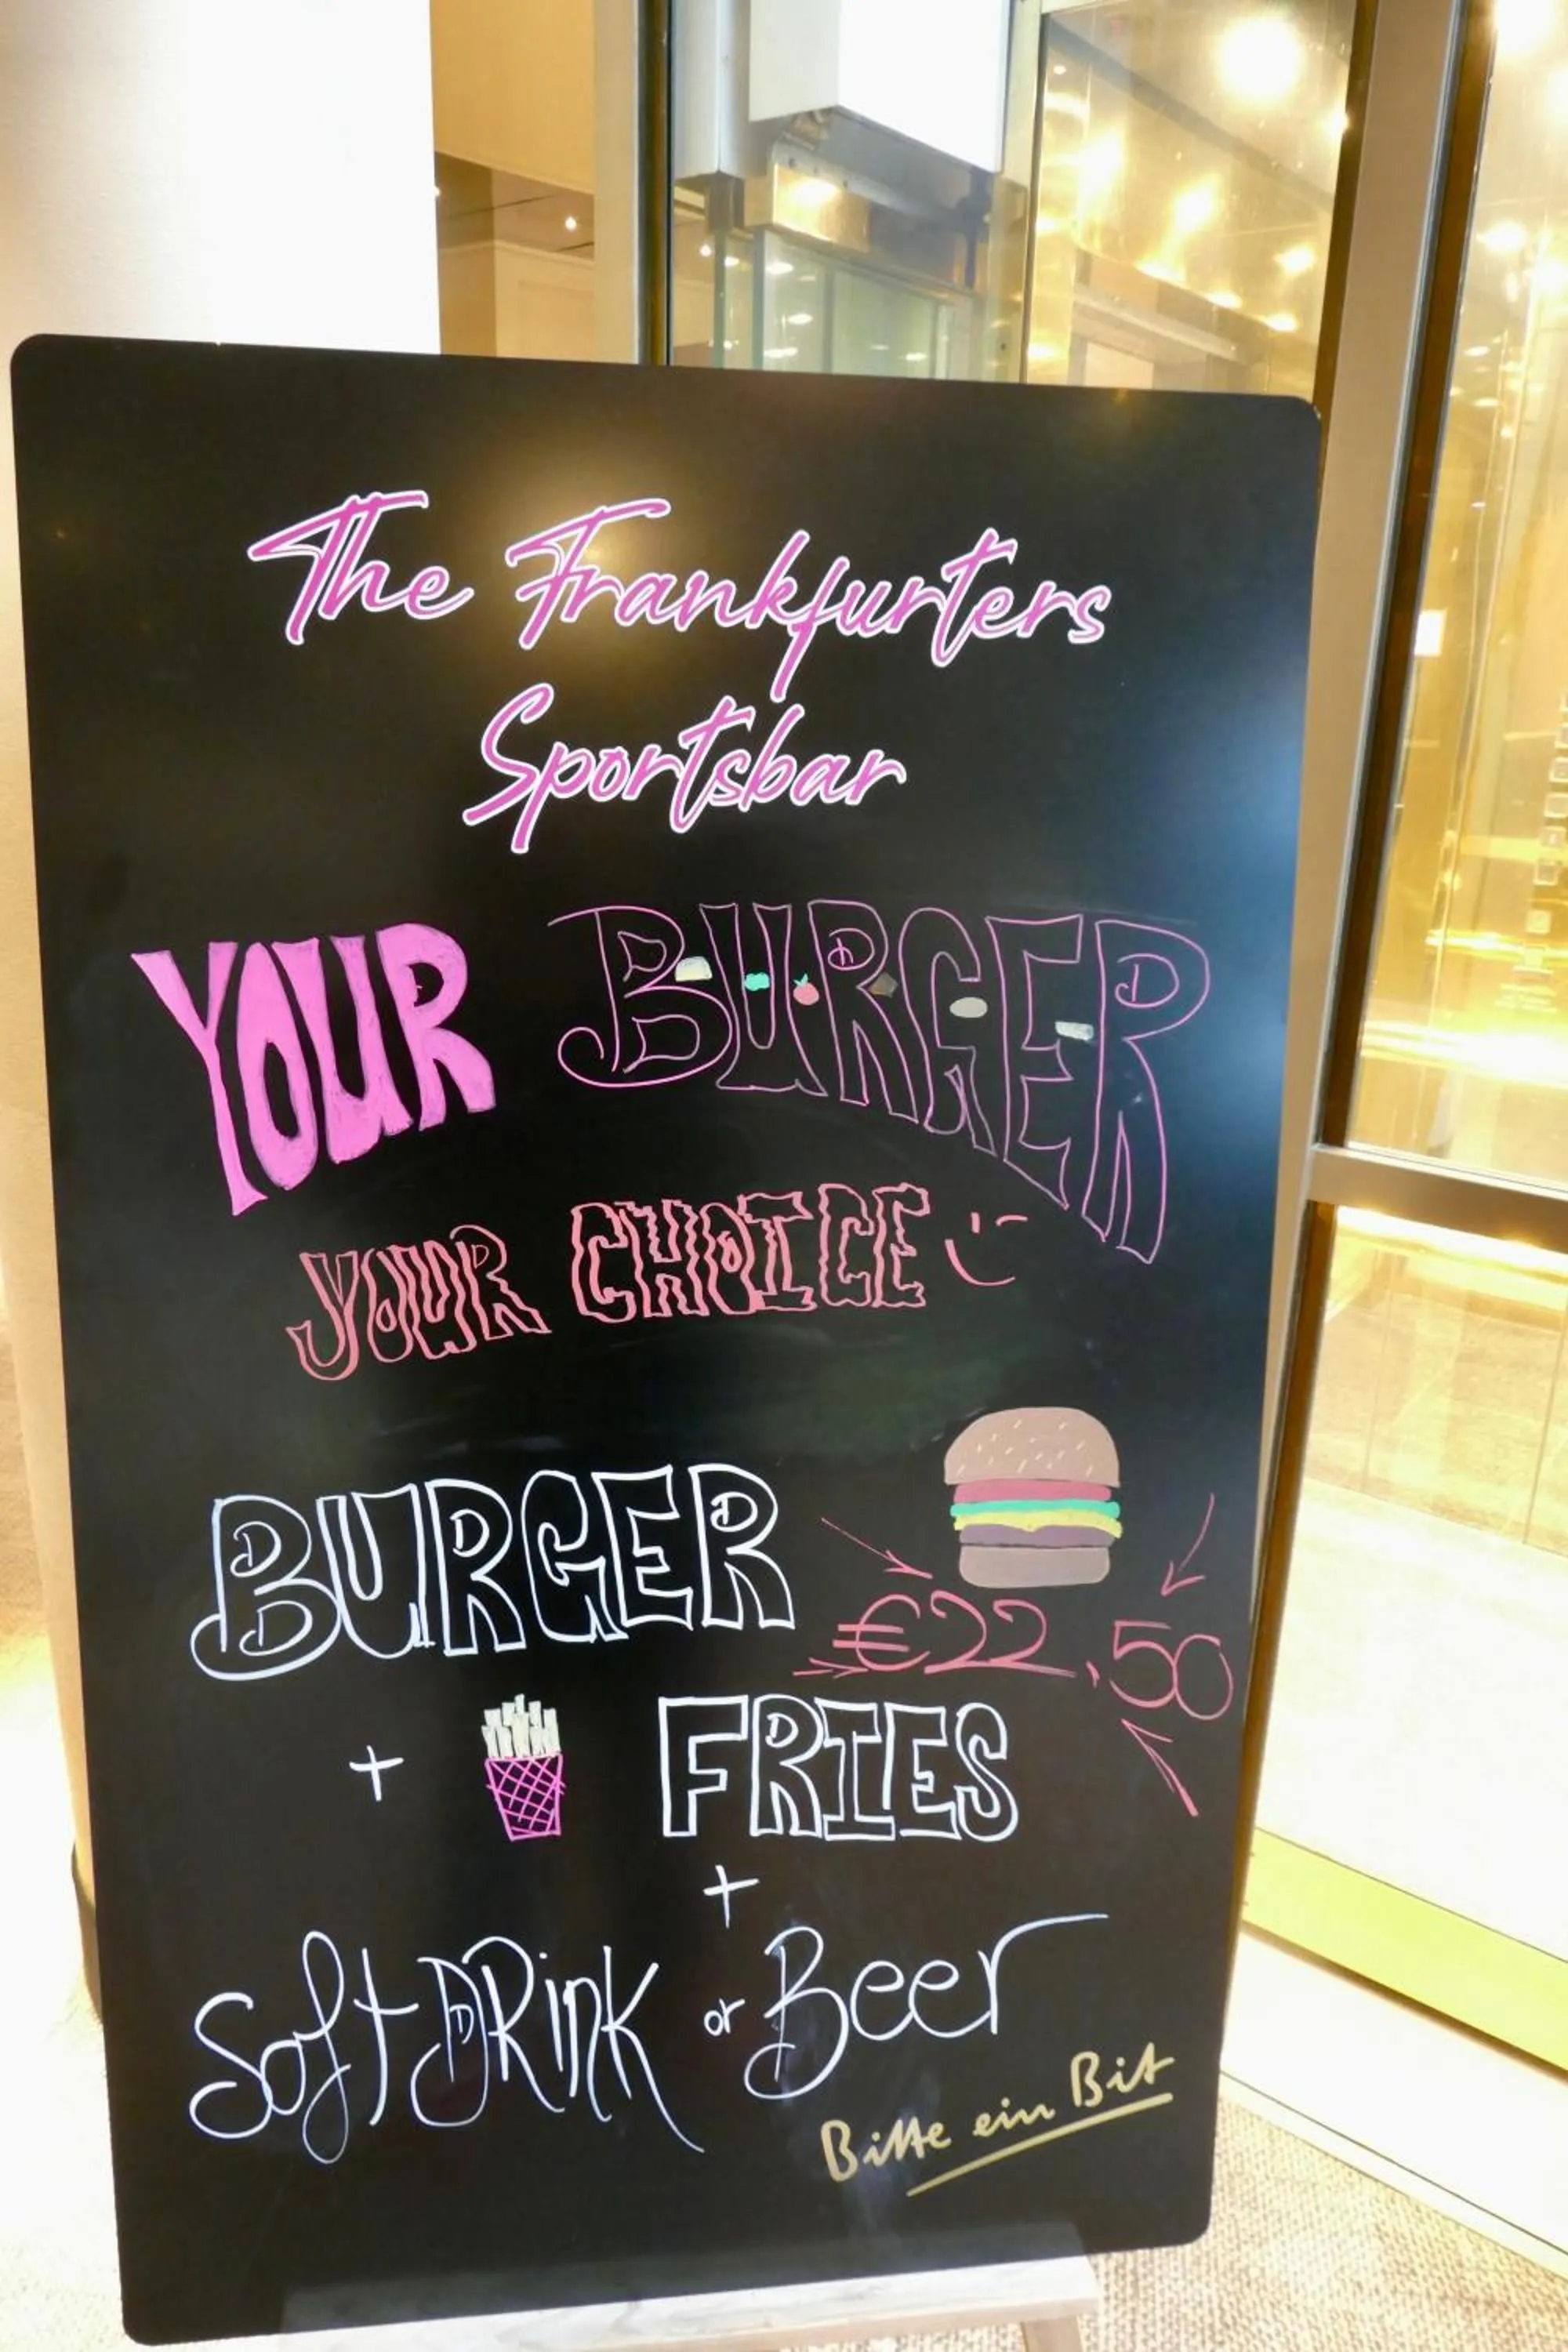 The Frankfurters
Sportsbar
YOUR BURGER
YOUR CHOICE
BURGER
€22.50
+ FRIES
+
Soft DRink or Beer
Bitte ein Bit